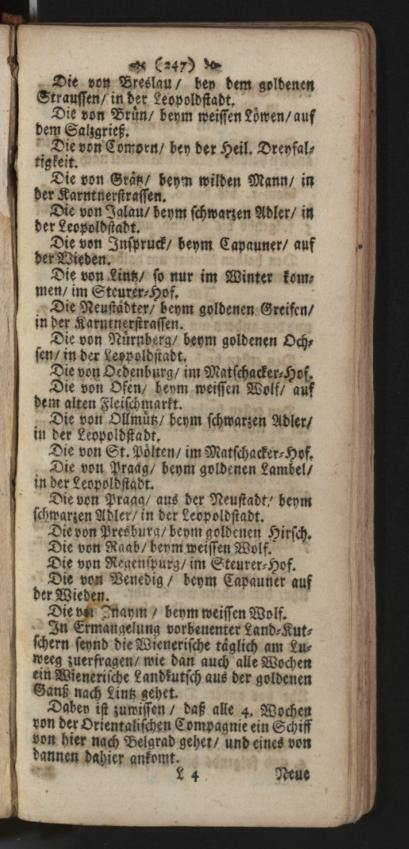 (247)
Die von Breslau / bey dem goldenen
Straussen / in der Leopoldstadt.
Die von Brün / beym weissen Löwen / auf
dem Salzgrieß.
Die von Comorn / bey der Heil. Dreyfal-
tigkeit.
Die von Grätz / beym wilden Mann / in
der Karntnerstrassen.
Die von Iglau / beym schwarzen Adler / in
der Leopoldstadt.
Die von Inspruck / beym Capauner / auf
der Wieden.
Die von Lintz / so nur im Winter kom-
men / im Steurer-Hof.
Die Neustädter / beym goldenen Greifen /
in der Karntnerstrassen.
Die von Nürnberg / beym goldenen Och-
sen / in der Leopoldstadt.
Die von Oedenburg / im Matschacker-Hof.
Die von Ofen / beym weissen Wolf / auf
dem alten Fleischmarkt.
Die von Ollmütz / beym schwarzen Adler /
in der Leopoldstadt.
Die von St. Pölten / im Matschacker-Hof.
Die von Praag / beym goldenen Lambel /
in der Leopoldstadt.
Die von Praag / aus der Neustadt / beym
schwarzen Adler / in der Leopoldstadt.
Die von Presburg / beym goldenen Hirsch.
Die von Raab / beym weissen Wolf.
Die von Regenspurg / im Steurer-Hof.
Die von Venedig / beym Capauner auf
der Wieden.
Die von Znaym / beym weissen Wolf.
In Ermangelung vorbenenter Land-Kut-
schern seynd die Wienerische täglich am Lu-
weeg zuerfragen / wie dan auch alle Wochen
ein Wienerische Landkutsch aus der goldenen
Ganß nach Lintz gehet.
Dabey ist zuwissen / daß alle 4. Wochen
von der Orientalischen Compagnie ein Schiff
von hier nach Belgrad gehet / und eines von
dannen dahier ankomt.
L 4 Neue